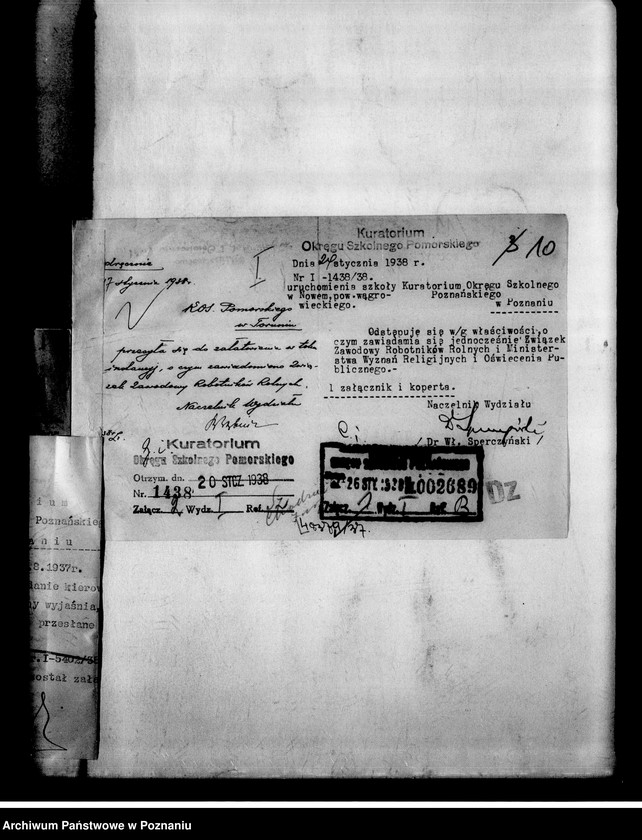 Kuratorium
Okręgu Szkolnego Pomorskiego
10
Dnia 24 stycznia 1938 r.
Nr I -1438/38.
uruchomienia szkoły Kuratorium Okręgu Szkolnego
w Nowem, pow. wągro- Poznańskiego
wieckiego. w Poznaniu
Odstępuje się w/g właściwości, o
czym zawiadamia się jednocześnie Związek
Zawodowy Robotników Rolnych i Minister-
stwa Wyznań Religijnych i Oświecenia Pu-
blicznego.-
1 załącznik i koperta.
Naczelnik Wydziału
/ Dr Wł. Sperczyński /
stycznia 1938 r.
I
KOS. Pomorskiego
w Toruniu
przesyła się do załatwienia w tok
instancyj, o czym zawiadomiono Zwią-
zek Zawodowy Robotników Rolnych.
Naczelnik Wydziału
Kuratorium
Okręgu Szkolnego Pomorskiego
Otrzym. dn. 20 STCZ 1938
Nr. 1438
Załącz. 2 Wydz. I Ref.
26 STY. 1938 002689
Załącz. Wydz. I Ref. B
DZ
ium
Poznańskie
aniu
.8.1937r.
anie kierow
ny wyjaśnia,
przesłane
r.I-5402/38
został zała
Archiwum Państwowe w Poznaniu